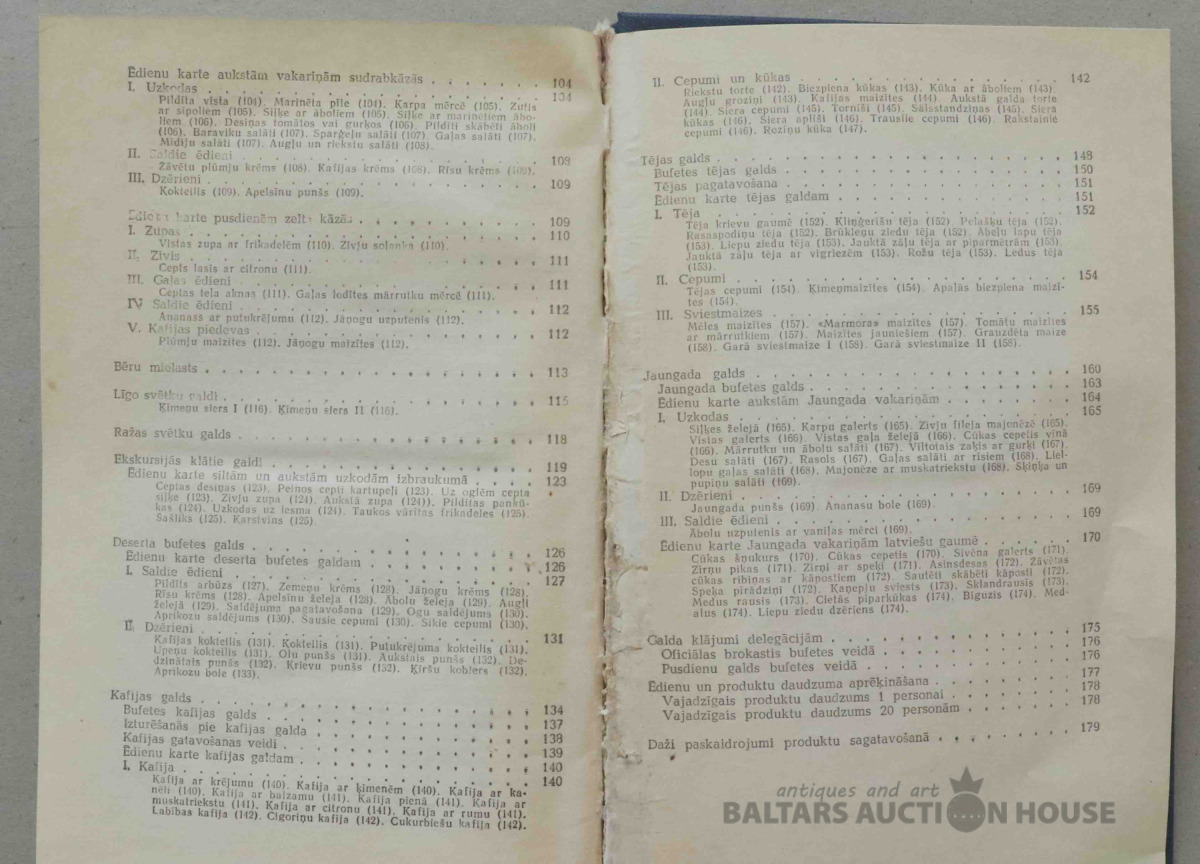 Ēdienu karte aukstām vakariņām sudrabkāzās . . . . . . 104
I. Uzkodas . . . . . . . . . . . . 104
Pildīta vista (104). Marinēta pīle (104). Karpa mērcē (105). Zutis
ar sīpoliem (105). Siļķe ar āboliem (105). Siļķe ar marinētiem ābo-
liem (106). Desiņas tomātos vai gurķos (106). Pildīti skābēti āboli
(106). Baraviku salāti (107). Sparģeļu salāti (107). Gaļas salāti (107).
Mīdiju salāti (107). Augļu un riekstu salāti (108).
II. Saldie ēdieni . . . . . . . . . . . . 108
Žāvētu plūmju krēms (108). Kafijas krēms (108). Rīsu krēms (109).
III. Dzērieni . . . . . . . . . . . . 109
Kokteilis (109). Apelsīnu punšs (109).
Ēdienu karte pusdienēm zelta kāzās . . . . . . 109
I. Zupas . . . . . . . . . . . . 110
Vistas zupa ar frikadelēm (110). Zivju soļanka (110).
II. Zivis . . . . . . . . . . . . 111
Cepts lasis ar citronu (111).
III. Gaļas ēdieni . . . . . . . . . . . . 111
Ceptas teļa aknas (111). Gaļas lodītes mārrutku mērcē (111).
IV Saldie ēdieni . . . . . . . . . . . . 112
Ananass ar putukrējumu (112). Jāņogu uzputenis (112).
V. Kafijas piedevas . . . . . . . . . . . . 112
Plūmju maizītes (112). Jāņogu maizītes (112).
Bēru mielasts . . . . . . . . . . . . 113
Līgo svētku galdi . . . . . . . . . . . . 115
Ķimeņu siers I (116). Ķimeņu siers II (116).
Ražas svētku galds . . . . . . . . . . . . 118
Ekskursijās klātie galdi . . . . . . . . . . . . 119
Ēdienu karte siltām un aukstām uzkodām izbraukumā . . . . 123
Ceptas desiņas (123). Pelnos cepti kartupeļi (123). Uz oglēm cepta
siļķe (123). Zivju zupa (124). Aukstā zupa (124)). Pildītas pankū-
kas (124). Uzkodas uz iesma (124). Taukos vārītas frikadeles (125).
Šašliks (125). Karstvīns (125).
Deserta bufetes galds . . . . . . . . . . . . 126
Ēdienu karte deserta bufetes galdam . . . . . . 126
I. Saldie ēdieni . . . . . . . . . . . . 127
Pildīts arbūzs (127). Zemeņu krēms (128). Jāņogu krēms (128).
Rīsu krēms (128). Apelsīnu želeja (128). Ābolu želeja (129). Augļi
želejā (129). Saldējuma pagatavošana (129). Ogu saldējums (130).
Aprikozu saldējums (130). Sausie cepumi (130). Sīkie cepumi (130).
II. Dzērieni . . . . . . . . . . . . 131
Kafijas kokteilis (131). Kokteilis (131). Putukrējuma kokteilis (131).
Upeņu kokteilis (131). Olu punšs (131). Aukstais punšs (132). De-
dzinātais punšs (132). Krievu punšs (132). Ķiršu koblers (132).
Aprikozu bole (133).
Kafijas galds . . . . . . . . . . . . 134
Bufetes kafijas galds . . . . . . . . . . . . 137
Izturēšanās pie kafijas galda . . . . . . . . 138
Kafijas gatavošanas veidi . . . . . . . . 139
Ēdienu karte kafijas galdam . . . . . . . . 140
I. Kafija . . . . . . . . . . . . 140
Kafija ar krējumu (140). Kafija ar ķimenēm (140). Kafija ar ka-
nēli (140). Kafija ar balzamu (141). Kafija pienā (141). Kafija ar
muskatriekstu (141). Kafija ar citronu (141). Kafija ar rumu (141).
Labības kafija (142). Cigoriņu kafija (142). Cukurbiešu kafija (142).
II. Cepumi un kūkas . . . . . . . . . . . . 142
Riekstu torte (142). Biezpiena kūkas (143). Kūka ar āboliem (143).
Augļu groziņi (143). Kafijas maizītes (144). Aukstā galda torte
(144). Siera cepumi (145). Tornīši (145). Sālsstandziņas (145). Siera
kūkas (146). Siera aplīši (146). Trauslie cepumi (146). Rakstainie
cepumi (146). Roziņu kūka (147).
Tējas galds . . . . . . . . . . . . 148
Bufetes tējas galds . . . . . . . . . . . . 150
Tējas pagatavošana . . . . . . . . . . . . 151
Ēdienu karte tējas galdam . . . . . . . . . . 151
I. Tēja . . . . . . . . . . . . 152
Tēja krievu gaumē (152). Kliņģerīšu tēja (152). Pelašķu tēja (152).
Rasaspodiņu tēja (152). Brūkleņu ziedu tēja (152). Ābeļu lapu tēja
(153). Liepu ziedu tēja (153). Jauktā zāļu tēja ar piparmētrām (153).
Jauktā zāļu tēja ar vīgriezēm (153). Rožu tēja (153). Ledus tēja
(153).
II. Cepumi . . . . . . . . . . . . 154
Tējas cepumi (154). Ķimeņmaizītes (154). Apaļās biezpiena maizī-
tes (154).
III. Sviestmaizes . . . . . . . . . . . . 155
Mēles maizītes (157). «Marmora» maizītes (157). Tomātu maizītes
ar mārrutkiem (157). Maizītes jauniešiem (157). Grauzdēta maize
(158). Garā sviestmaize I (158). Garā sviestmaize II (158).
Jaungada galds . . . . . . . . . . . . 160
Jaungada bufetes galds . . . . . . . . . . 163
Ēdienu karte aukstām Jaungada vakariņām . . . . . . 164
I. Uzkodas . . . . . . . . . . . . 165
Siļķes želejā (165). Karpu galerts (165). Zivju fileja majonēzē (165).
Vistas galerts (166). Vistas gaļa želejā (166). Cūkas cepetis vīnā
(166). Mārrutku un ābolu salāti (167). Viltotais zaķis ar gurķi (167).
Desu salāti (167). Rasols (167). Gaļas salāti ar rīsiem (168). Liel-
lopu gaļas salāti (168). Majonēze ar muskatriekstu (168). Šķiņķa un
pupiņu salāti (169).
II. Dzērieni . . . . . . . . . . . . 169
Jaungada punšs (169). Ananasu bole (169).
III. Saldie ēdieni . . . . . . . . . . . . 169
Ābolu uzputenis ar vaniļas mērci (169).
Ēdienu karte Jaungada vakariņām latviešu gaumē . . . . . . 170
Cūkas šņukurs (170). Cūkas cepetis (170). Sivēna galerts (171).
Zirņu pikas (171). Zirņi ar speķi (171). Asinsdesas (172). Žāvētas
cūkas ribiņas ar kāpostiem (172). Sautēti skābēti kāposti (172).
Speķa pīrādziņi (172). Kaņepju sviests (173). Sklandrausis (173).
Medus rausis (173). Cietās piparkūkas (174). Biguzis (174). Med-
alus (174). Liepu ziedu dzēriens (174).
Galda klājumi delegācijām . . . . . . . . . . 175
Oficiālas brokastis bufetes veidā . . . . . . . . 176
Pusdienu galds bufetes veidā . . . . . . . . 176
Ēdienu un produktu daudzuma aprēķināšana . . . . . . 177
Vajadzīgais produktu daudzums 1 personai . . . . . . 178
Vajadzīgais produktu daudzums 20 personām . . . . . . 178
Daži paskaidrojumi produktu sagatavošanā . . . . . . 179
antiques and art
BALTARS AUCTION HOUSE